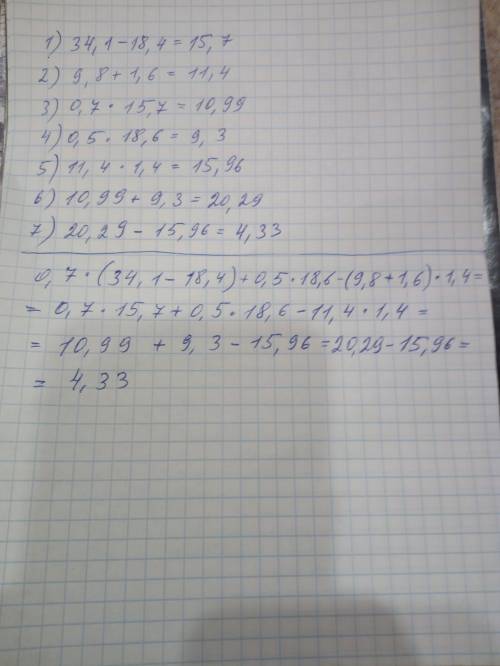 1) 34,1-18,4=15,7
2) 9,8+1,6=11,4
3) 0,7·15,7=10,99
4) 0,5·18,6=9,3
5) 11,4·1,4=15,96
6) 10,99+9,3=20,29
7) 20,29-15,96=4,33
0,7·(34,1-18,4)+0,5·18,6-(9,8+1,6)·1,4=
=0,7·15,7+0,5·18,6-11,4·1,4=
=10,99+9,3-15,96=20,29-15,96=
=4,33